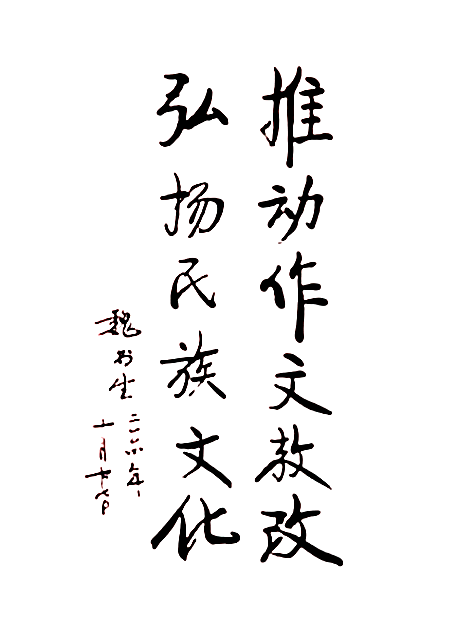 推动作文教改
弘扬民族文化
魏书生
二〇一六年
十一月十七日